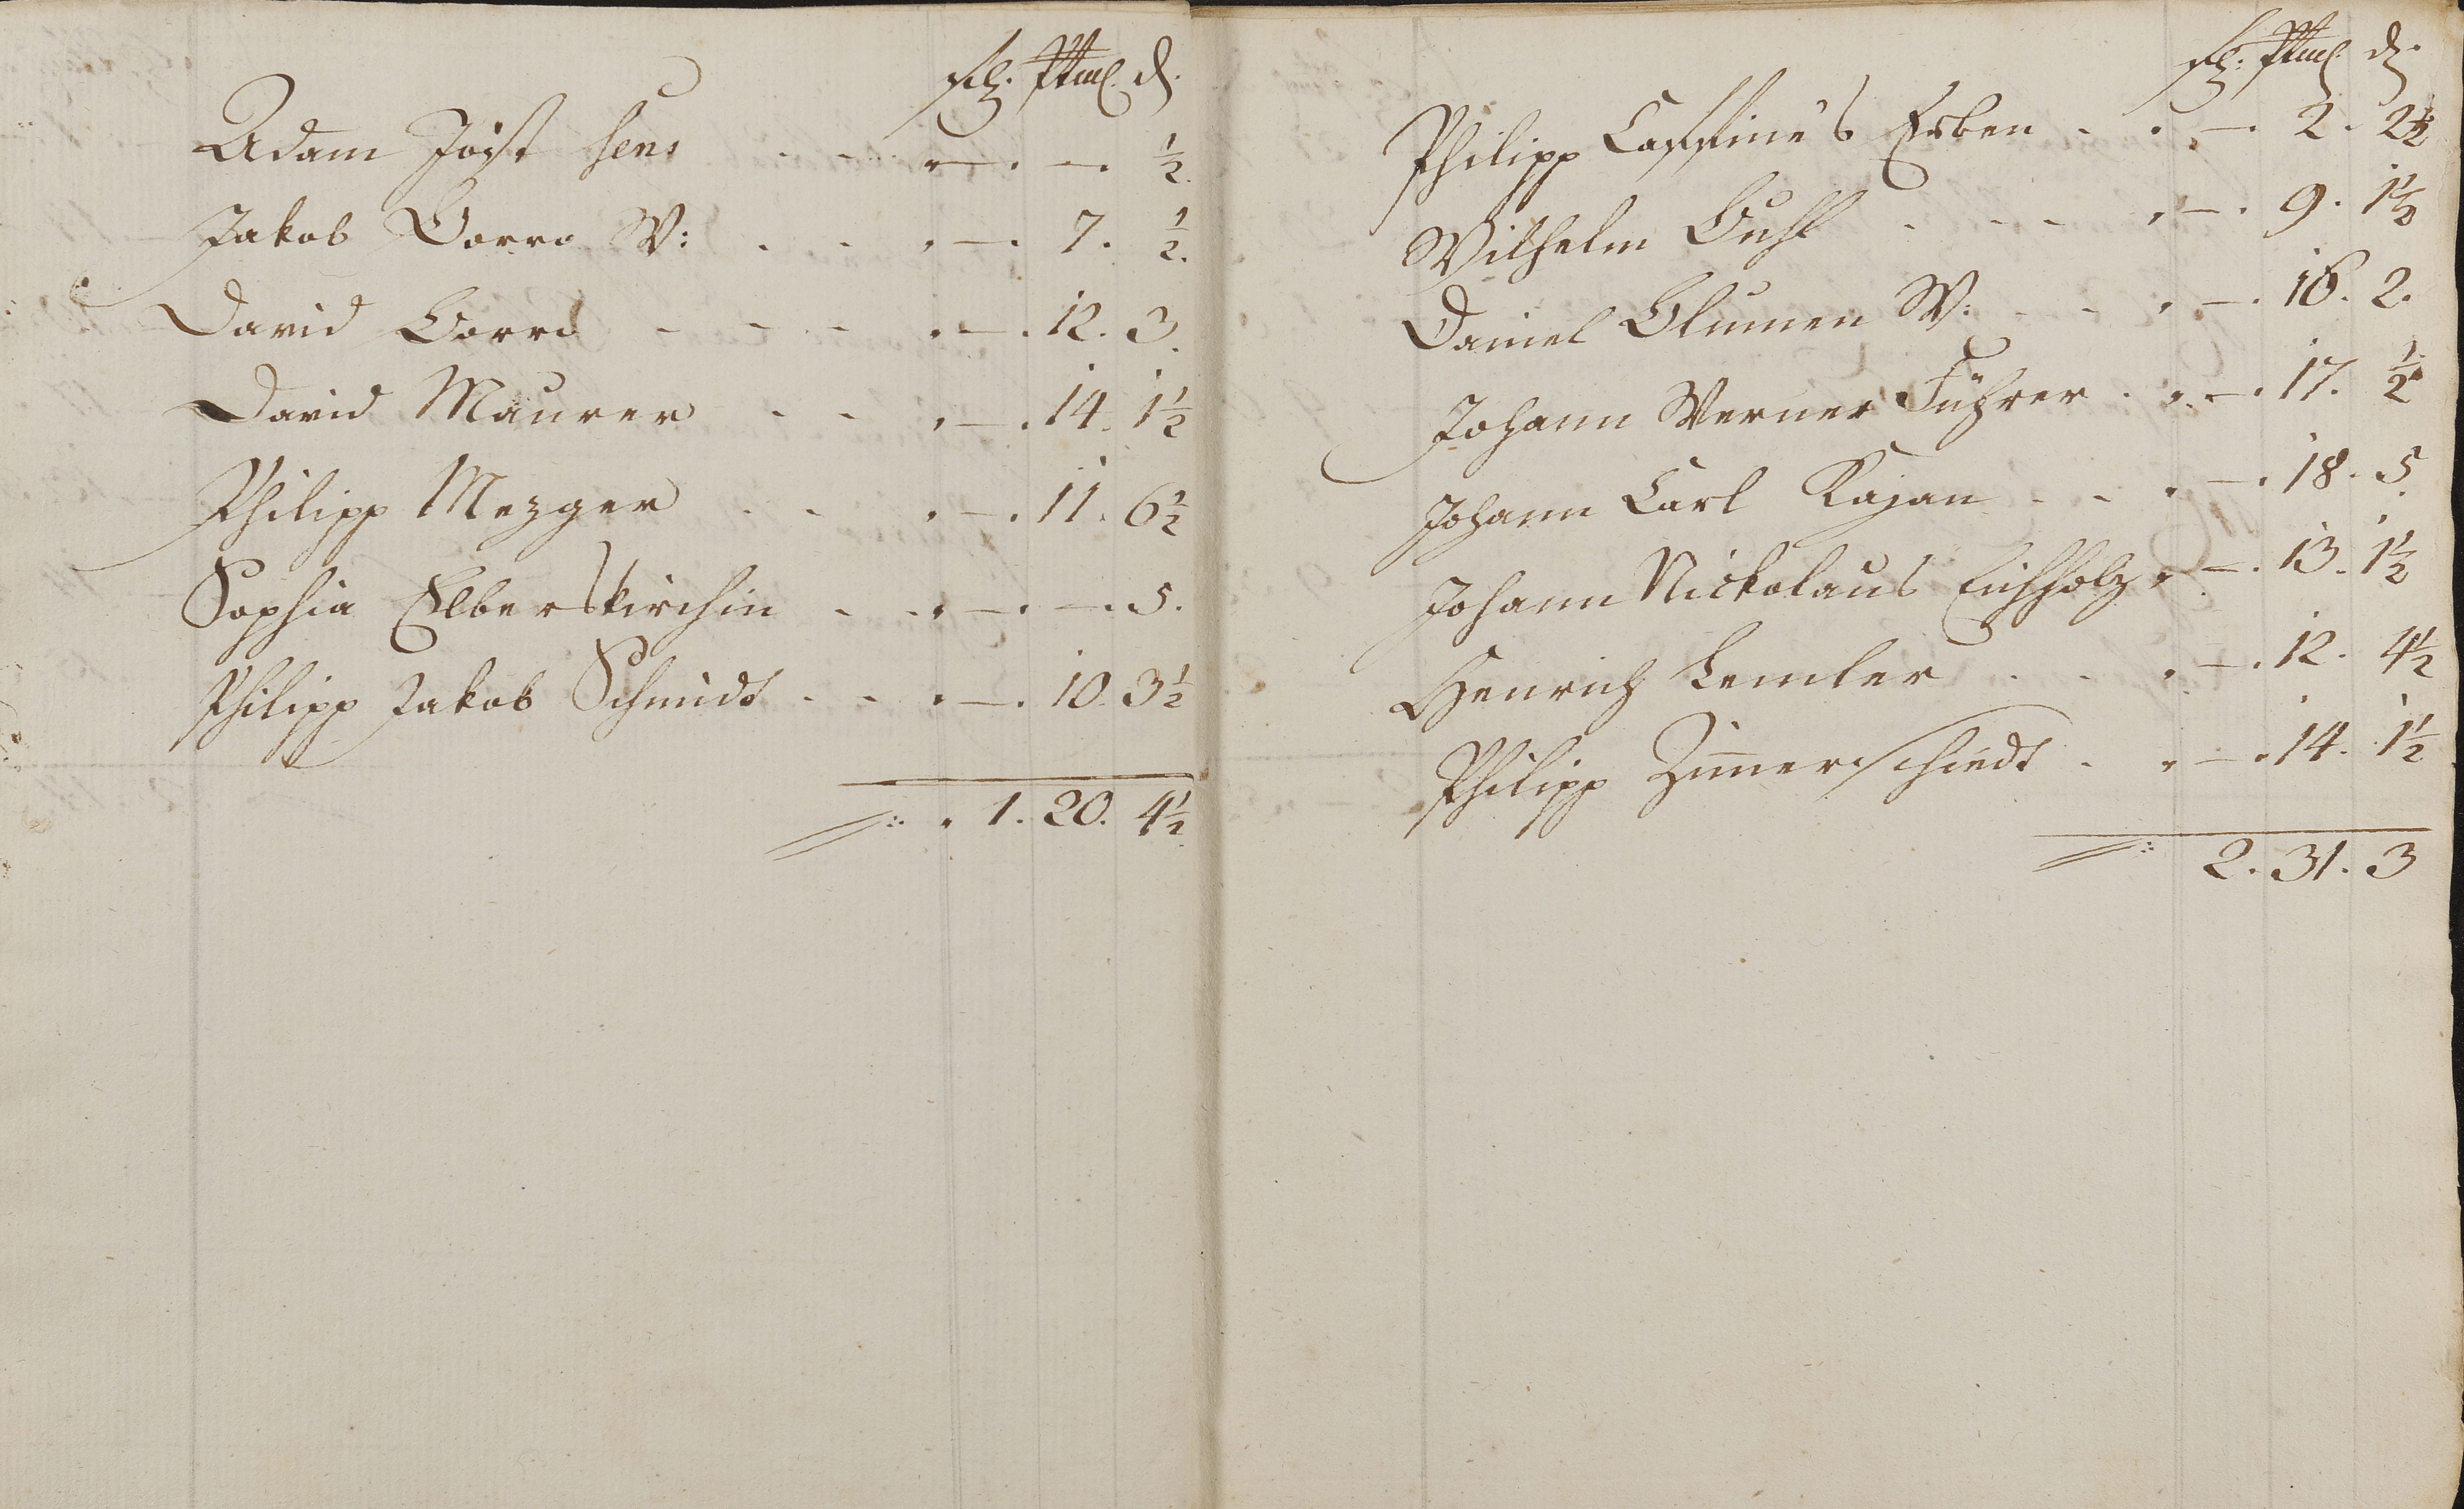 Adam Joÿst sen.
. — . — . ½.
Jakob Dorro W: . . . — . 7. ½.
David Dorro . — . 12. 3.
David Maurer . — . 14. 1½
Philipp Mezger . — . 11. 6½
Sophia Elberskirchin . — . — . 5.
Philipp Jakob Schmidt . — . 10. 3½
1. 20. 4½
Philipp Erben . — . 2. 2½
Wilhelm . — . 9. 1½
Daniel Blumen W: . — . 16. 2.
Johann Werner Führer . — . 17. ½
Johann Carl Kajan . — . 18. 5.
Johann Nickolaus Eichholz . — . 13. 1½
Henrich Lemler . — . 12. 4½
Philipp Zimerschiedt . — . 14. 1½
2. 31. 3